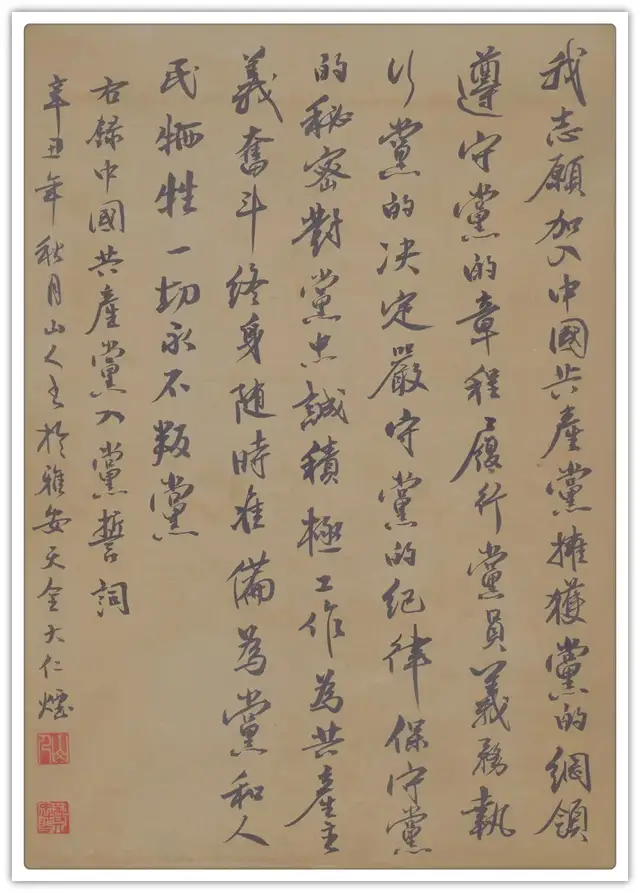 我志願加入中國共產黨擁獲黨的綱領
遵守黨的章程履行黨員義務執
行黨的决定嚴守黨的紀律保守黨
的秘密對黨忠誠積極工作為共產主
義奮斗終身随時准備為黨和人
民牺牲一切永不叛黨
右録中國共產黨入黨誓詞
辛丑年秋月山人书於雅安天全大仁